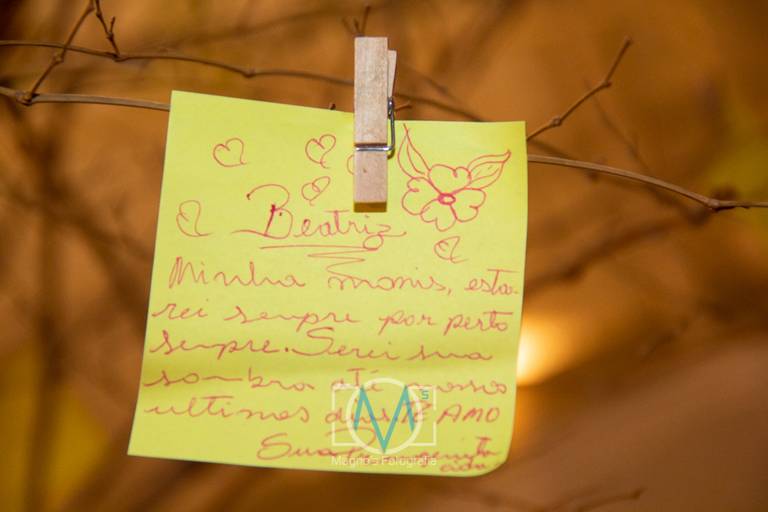 Beatriz
Minha monis, esta-
rei sempre por perto
sempre. Serei sua
sombra até nossos
ultimos dias. TE AMO
Sua
MS
Magno's Fotografia